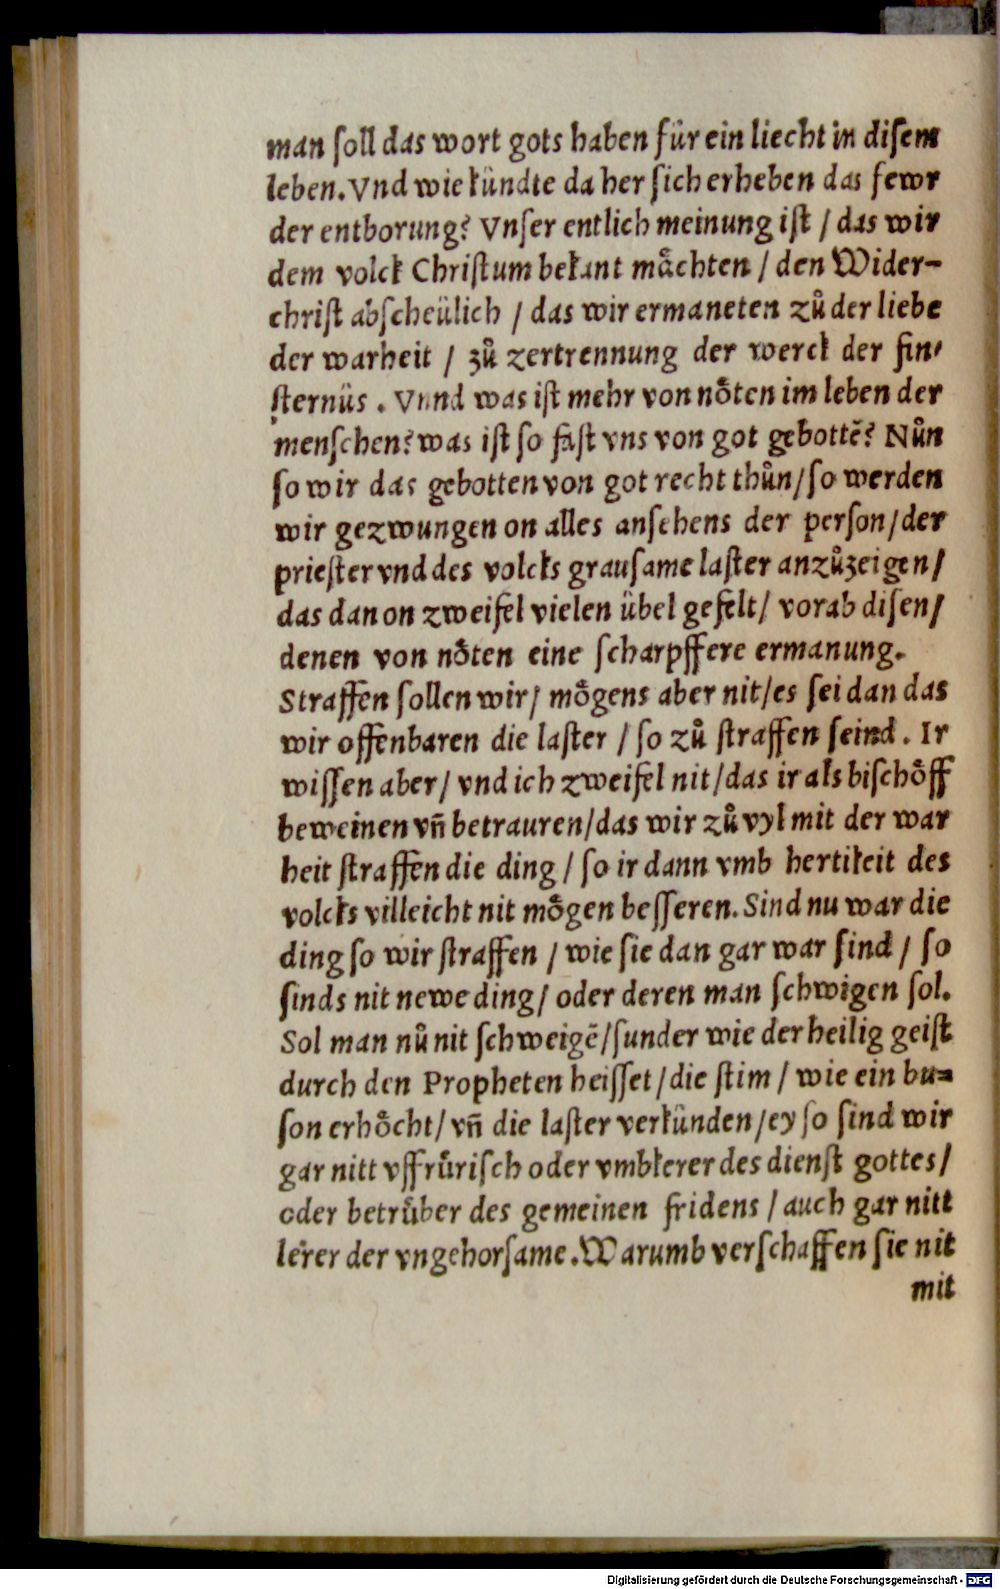 man ſoll das wort gots haben für ein liecht in diſem
leben. Vnd wie kündte da her ſich erheben das fewr
der entborung? Vnſer entlich meinung iſt / das wir
dem volck Chriſtum bekant mächten / den Wider-
chriſt abſcheülich / das wir ermaneten zů der liebe
der warheit / zů zertrennung der werck der fin⸗
ſternüs . Vnnd was iſt mehr von nöten im leben der
menſchen? was iſt ſo faſt vns von got gebottẽ? Nůn
ſo wir das gebotten von got recht thůn/ ſo werden
wir gezwungen on alles anſehens der perſon/ der
prieſter vnd des volcks grauſame laſter anzůzeigen/
das dan on zweifel vielen übel gefelt/ vorab diſen/
denen von nöten eine ſcharpffere ermanung.
Straffen ſollen wir/ mögens aber nit/ es ſei dan das
wir offenbaren die laſter / ſo zů ſtraffen ſeind . Ir
wiſſen aber/ vnd ich zweifel nit/ das ir als biſchöff
beweinen vñ betrauren/ das wir zů vyl mit der war
heit ſtraffen die ding / ſo ir dann vmb hertikeit des
volcks villeicht nit mögen beſſeren. Sind nu war die
ding ſo wir ſtraffen / wie ſie dan gar war ſind / ſo
ſinds nit newe ding/ oder deren man ſchwigen ſol.
Sol man nů nit ſchweigẽ/ ſunder wie der heilig geiſt
durch den Propheten heiſſet/ die ſtim / wie ein bu⸗
ſon erhöcht/ vñ die laſter verkünden/ ey ſo ſind wir
gar nitt vffrůriſch oder vmbkerer des dienſt gottes/
oder betrůber des gemeinen fridens / auch gar nitt
lerer der vngehorſame. Warumb verſchaffen ſie nit
mit
Digitalisierung gefördert durch die Deutsche Forschungsgemeinschaft - DFG